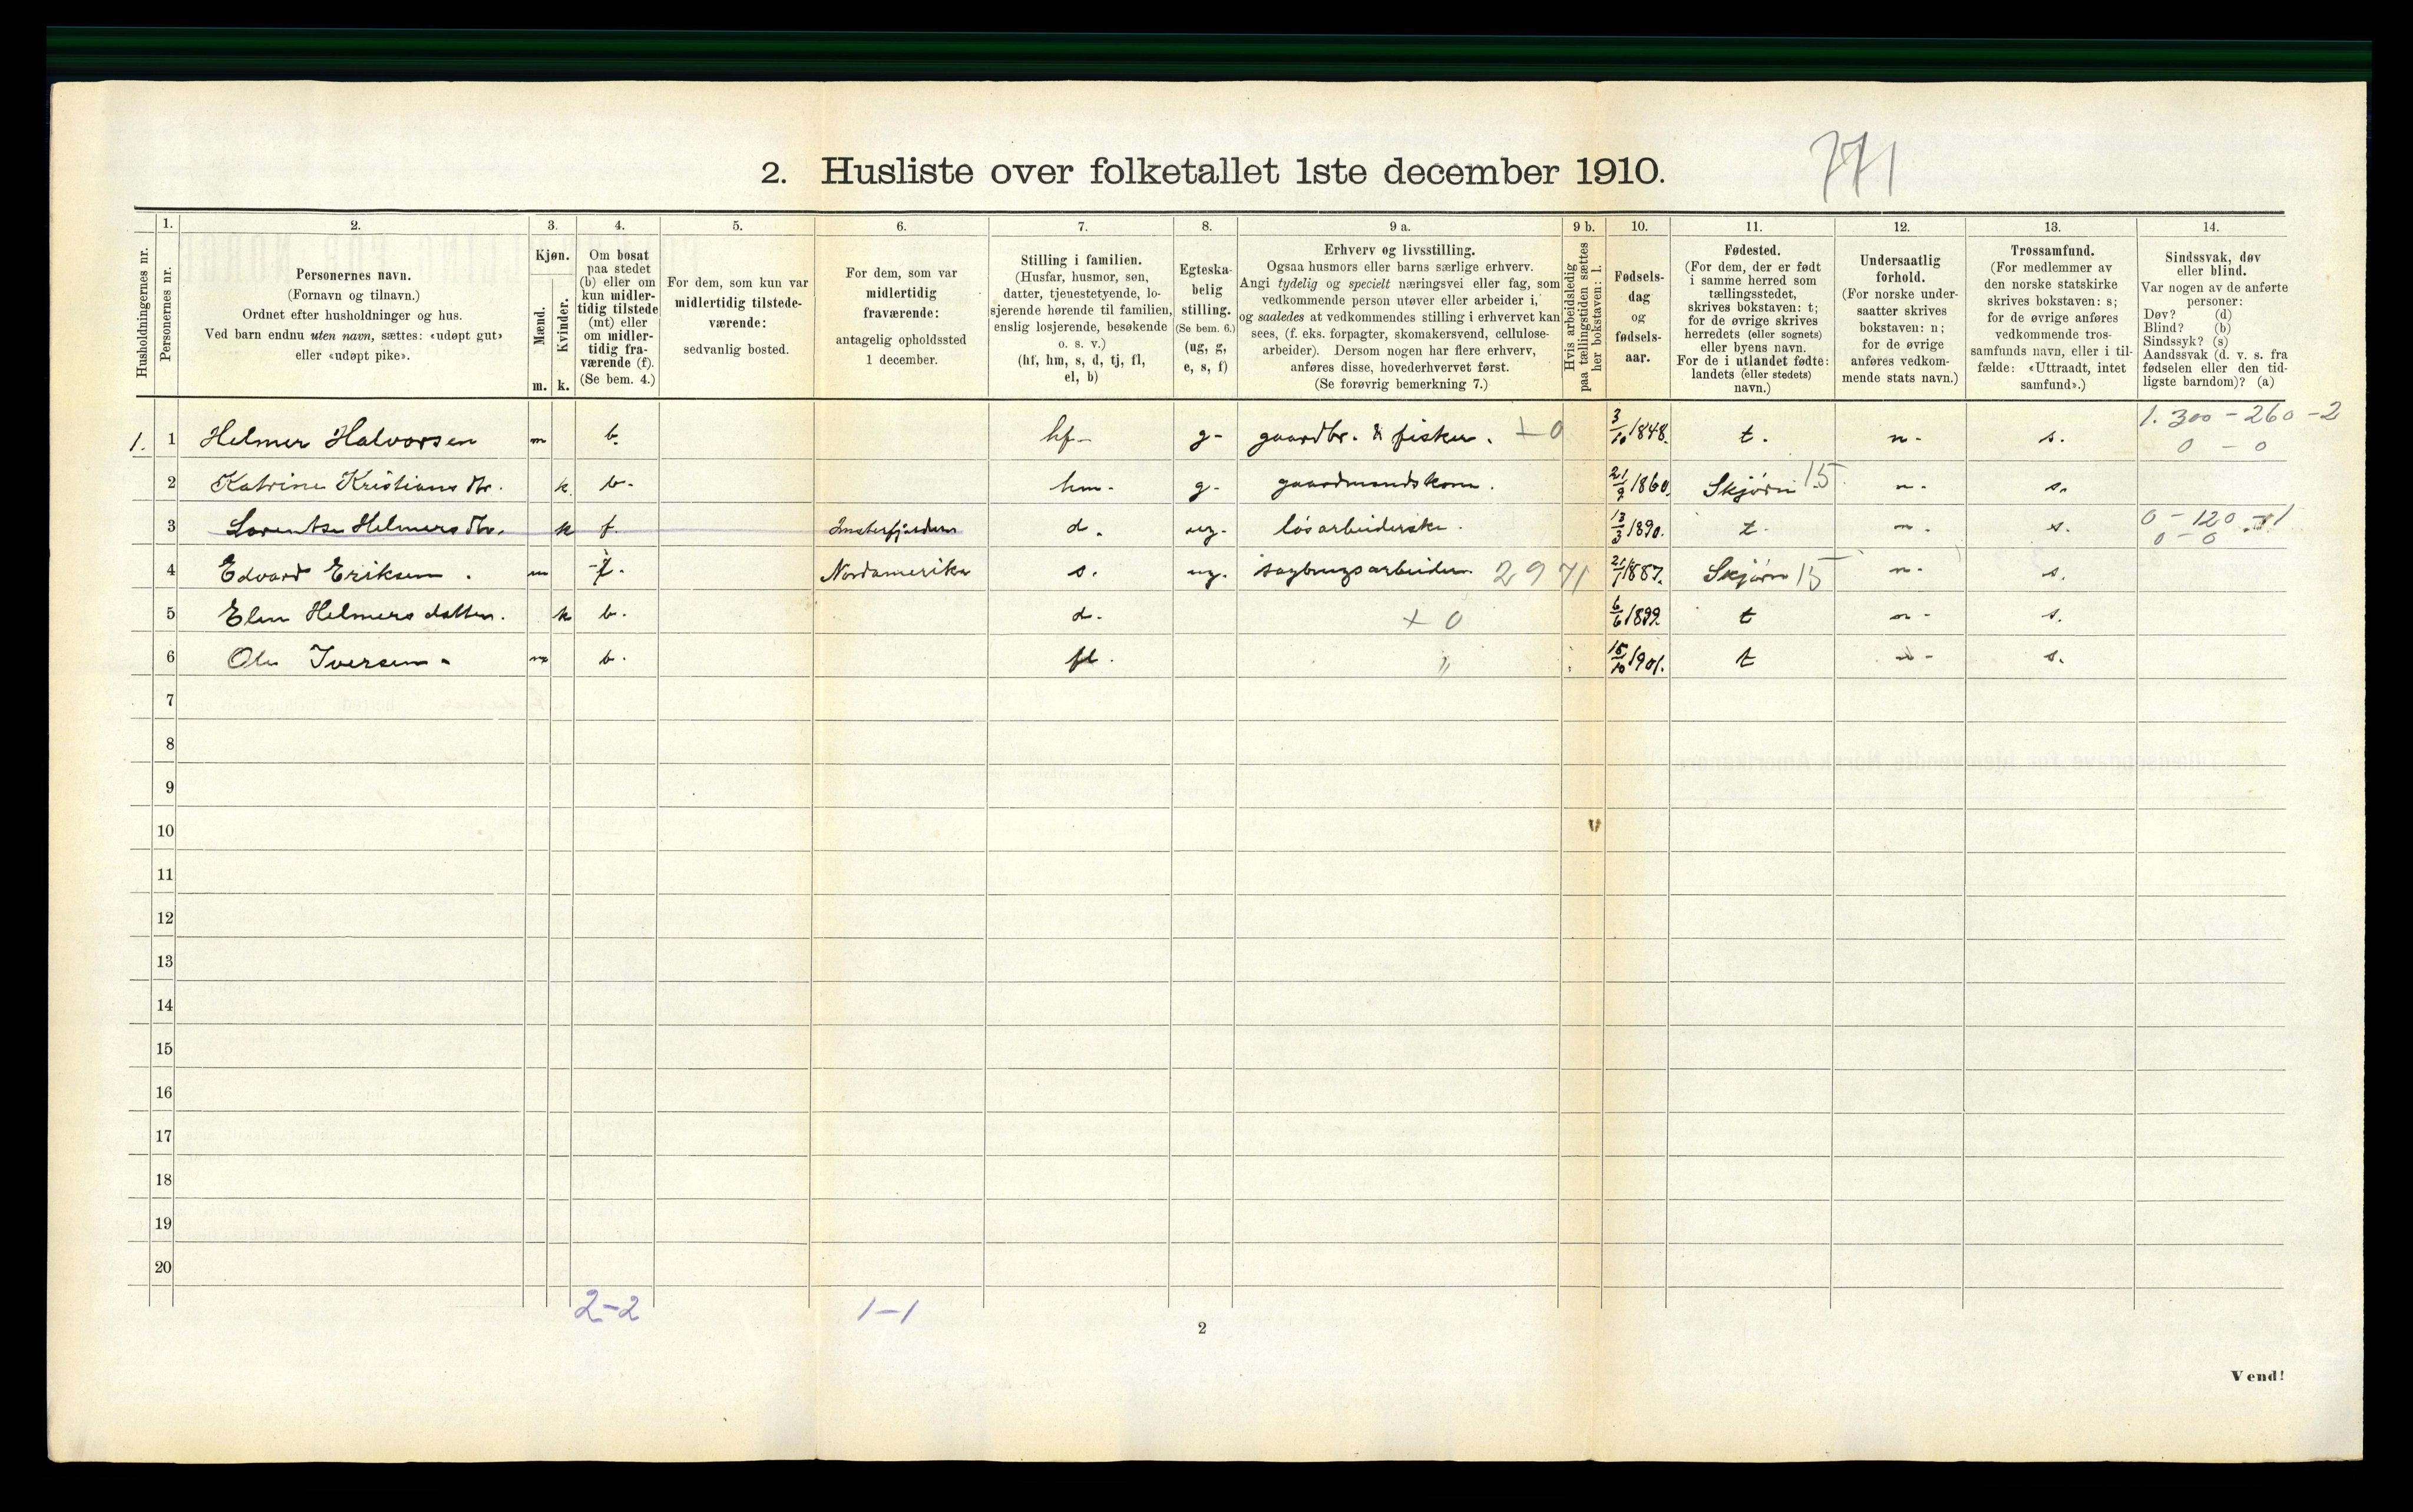 2. Husliste over folketallet 1ste december 1910.
771
Husholdningernes nr.
1.
Personernes nr.
2.
Personernes navn.
(Fornavn og tilnavn.)
Ordnet efter husholdninger og hus.
Ved barn endnu uten navn, sættes: «udøpt gut»
eller «udøpt pike».
3.
Kjøn.
Mænd.
Kvinder.
m. k.
4.
Om bosat
paa stedet
(b) eller om
kun midler-
tidig tilstede
(mt) eller
om midler-
tidig fra-
værende (f).
(Se bem. 4.)
5.
For dem, som kun var
midlertidig tilstede-
værende:
sedvanlig bosted.
6.
For dem, som var
midlertidig
fraværende:
antagelig opholdssted
1 december.
7.
Stilling i familien.
(Husfar, husmor, søn,
datter, tjenestetyende, lo-
sjerende hørende til familien,
enslig losjerende, besøkende
o. s. v.)
(hf, hm, s, d, tj, fl,
el, b)
8.
Egteska-
belig
stilling.
(Se bem. 6.)
(ug, g,
e, s, f)
9 a.
Erhverv og livsstilling.
Ogsaa husmors eller barns særlige erhverv.
Angi tydelig og specielt næringsvei eller fag, som
vedkommende person utøver eller arbeider i,
og saaledes at vedkommendes stilling i erhvervet kan
sees, (f. eks. forpagter, skomakersvend, cellulose-
arbeider). Dersom nogen har flere erhverv,
anføres disse, hovederhvervet først.
(Se forøvrig bemerkning 7.)
9 b.
Hvis arbeidsledig
paa tællingstiden sættes
her bokstaven: l.
10.
Fødsels-
dag
og
fødsels-
aar.
11.
Fødested.
(For dem, der er født
i samme herred som
tællingsstedet,
skrives bokstaven: t;
for de øvrige skrives
herredets (eller sognets)
eller byens navn.
For de i utlandet fødte:
landets (eller stedets)
navn.)
12.
Undersaatlig
forhold.
(For norske under-
saatter skrives
bokstaven: n;
for de øvrige
anføres vedkom-
mende stats navn.)
13.
Trossamfund.
(For medlemmer av
den norske statskirke
skrives bokstaven: s;
for de øvrige anføres
vedkommende tros-
samfunds navn, eller i til-
fælde: «Uttraadt, intet
samfund».)
14.
Sindssvak, døv
eller blind.
Var nogen av de anførte
personer:
Døv? (d)
Blind? (b)
Sindssyk? (s)
Aandssvak (d. v. s. fra
fødselen eller den tid-
ligste barndom)? (a)
1. 1 Helmer Halvorsen m b. hf- g- gaardbr. & fisker. + 0 3/10 1848. t. n- s. 1. 300 - 260 - 2
0 - 0
2 Katrine Kristians dtr. k. b. hm- g- gaardmandskone. 21/9 1860. Skjørn 15 n- s.
3 Lorentse Helmers dtr. k f. d. ug- løsarbeiderske. 13/3 1890. t. n. s. 0 - 120 - 1
0 - 0
4 Edvard Eriksen. m f. Nordamerika s. ug. sagbrugsarbeider. 2971 21/1 1887. Skjørn 15 n- s.
5 Elen Helmers datter. k b. d. + 0 6/6 1899. t n- s.
6 Ole Iversen - m b. fl. " 15/10 1901. t n- s.
7
8
9
10
11
12
13
14
15
16
17
18
19
20
2-2 1-1
2
Vend!